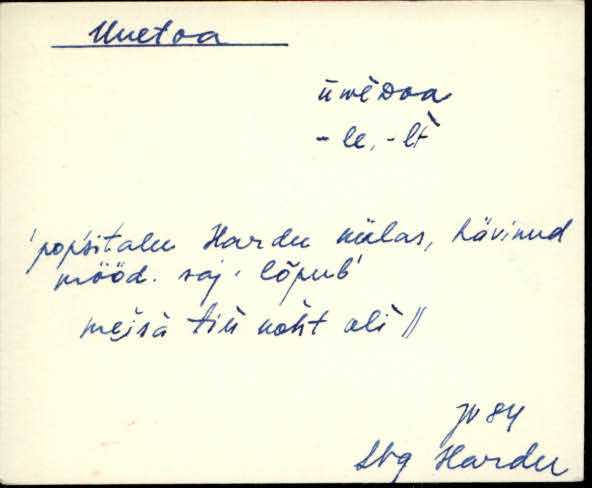 Uuetoa
üwèDoa
-le, -lt
'popsitalu Hardu külas, hävinud
mööd. saj. lõpub'
meisä tiù köht oli //
JV 84
Hardu